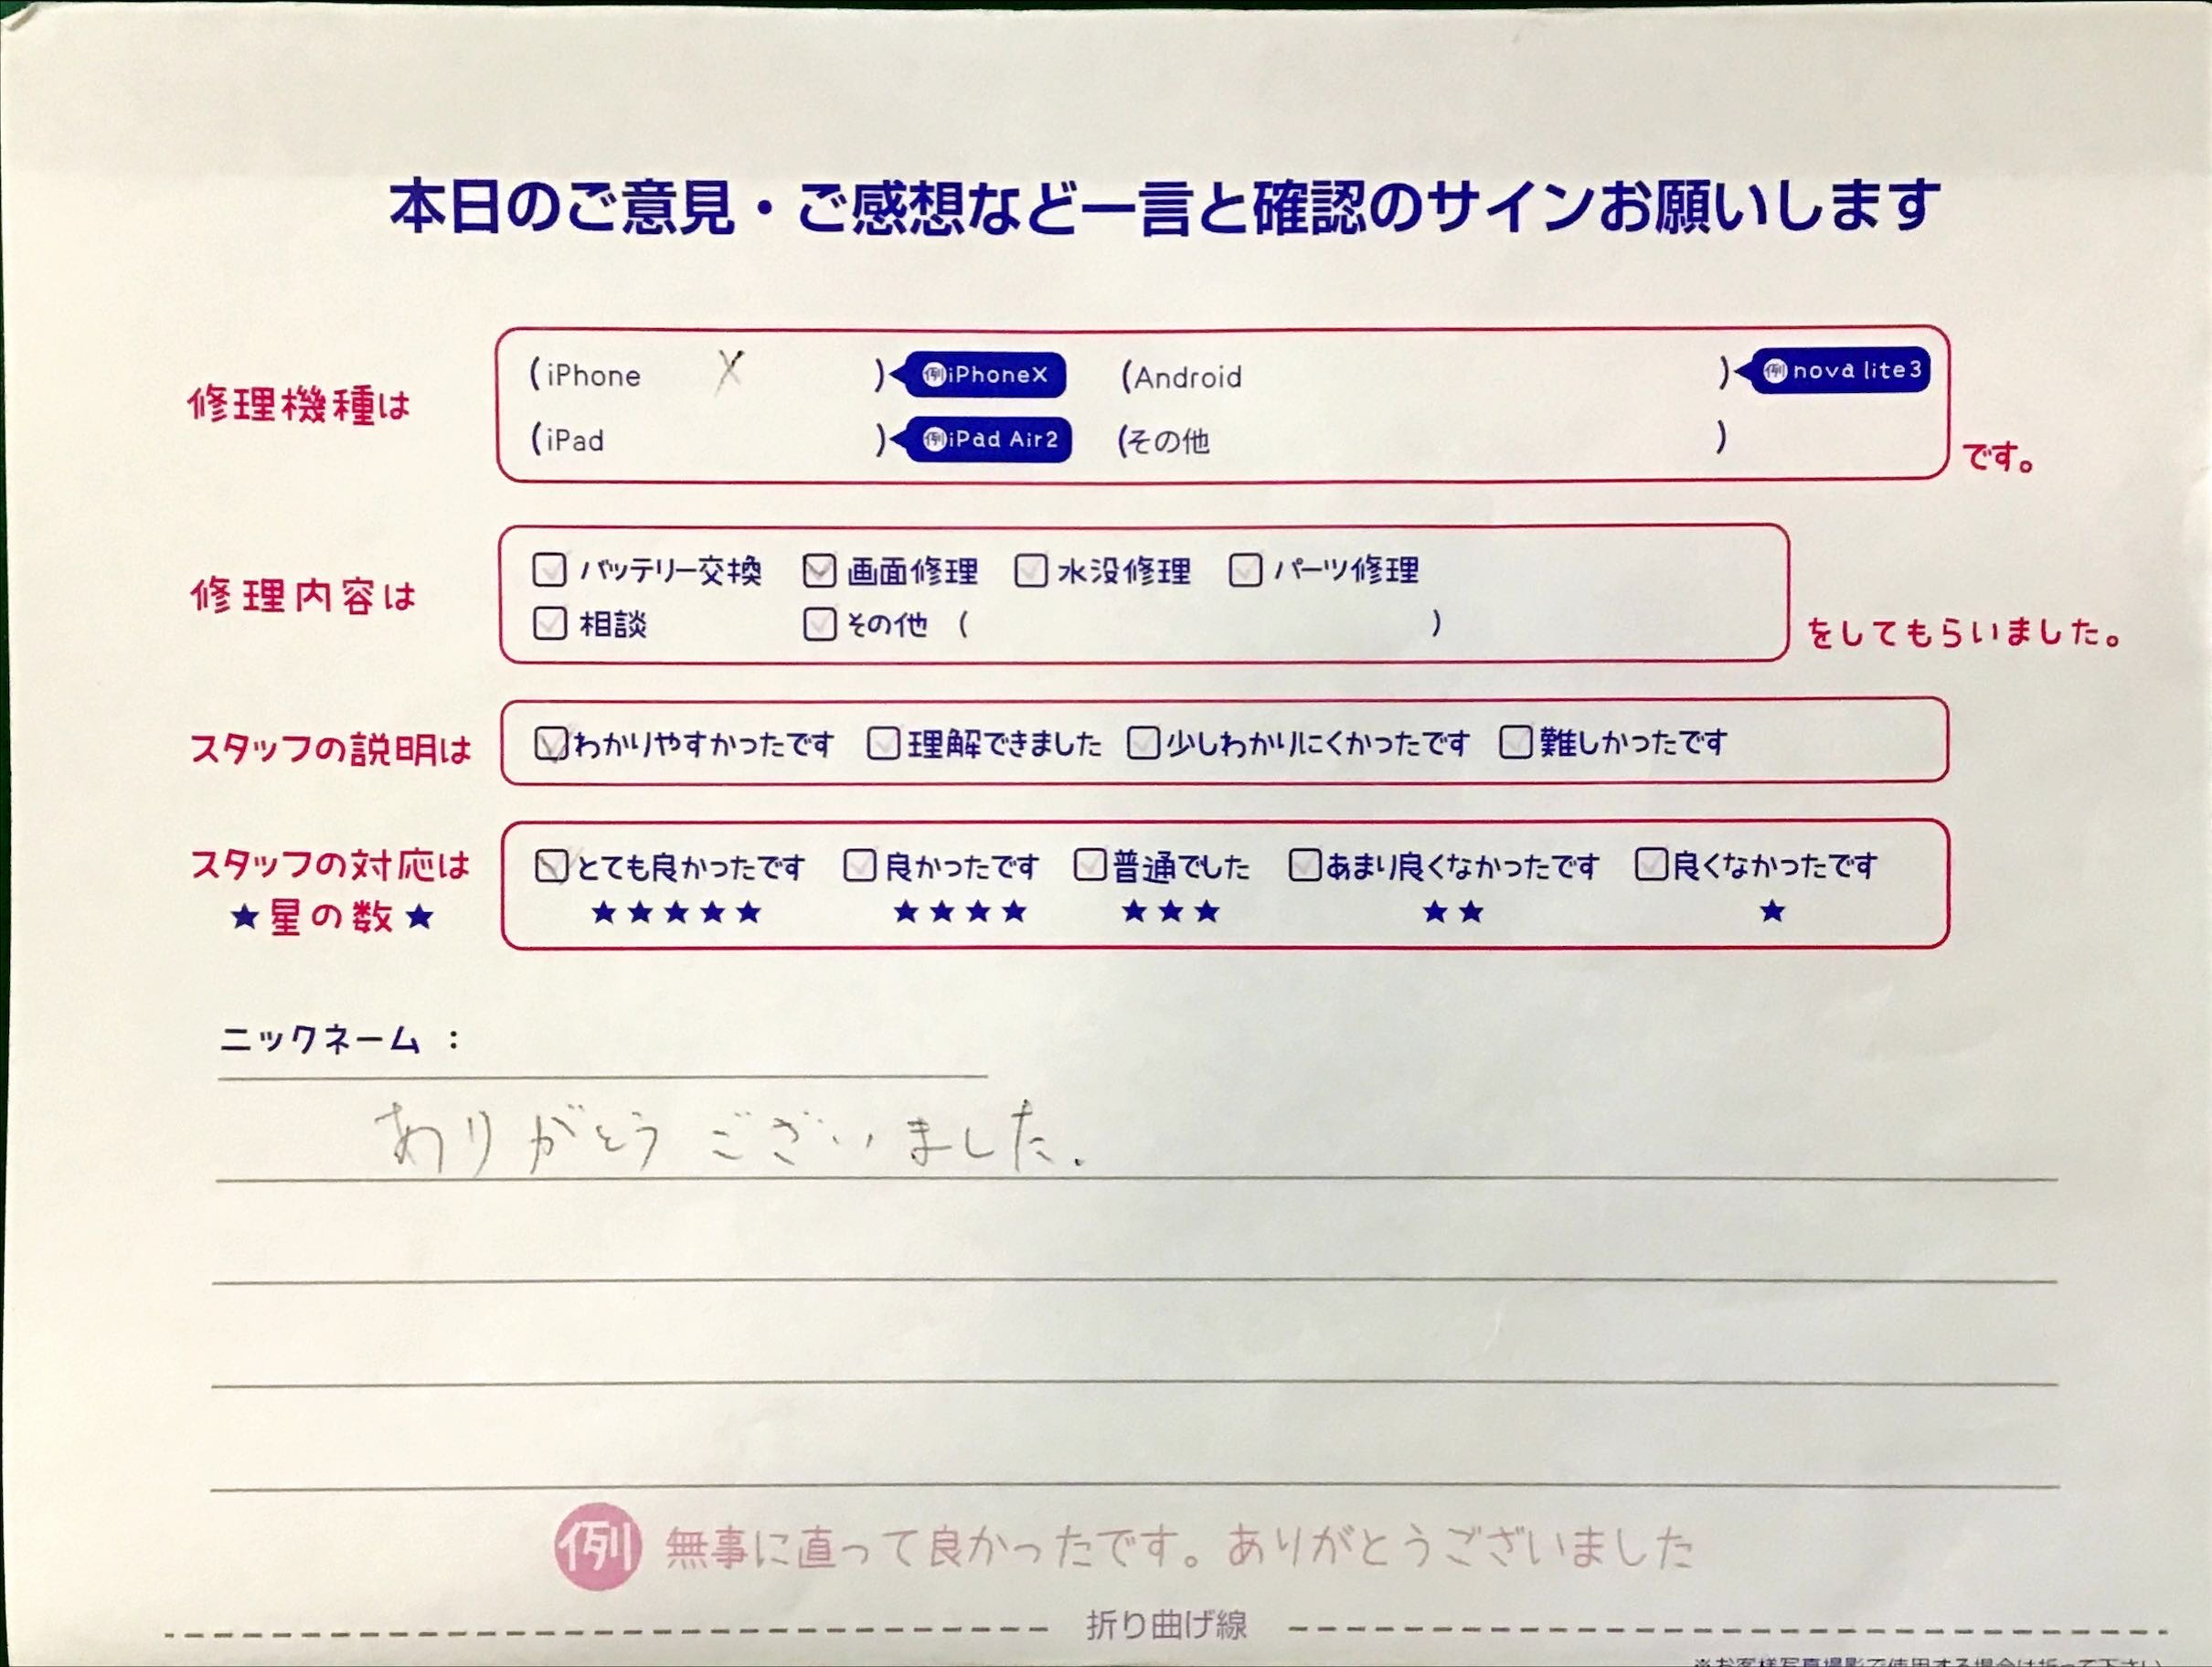 本日のご意見・ご感想など一言と確認のサインお願いします
修理機種は (iPhone X ) 例iPhoneX (Android ) 例nova lite3
(iPad ) 例iPad Air2 (その他 ) です。
修理内容は バッテリー交換 画面修理 水没修理 パーツ修理
相談 その他 ( ) をしてもらいました。
スタッフの説明は わかりやすかったです 理解できました 少しわかりにくかったです 難しかったです
スタッフの対応は とても良かったです 良かったです 普通でした あまり良くなかったです 良くなかったです
★星の数★ ★★★★★ ★★★★ ★★★ ★★ ★
ニックネーム :
ありがとうございました.
例 無事に直って良かったです。ありがとうございました
折り曲げ線
※お客様写真撮影で使用する場合は折って下さい